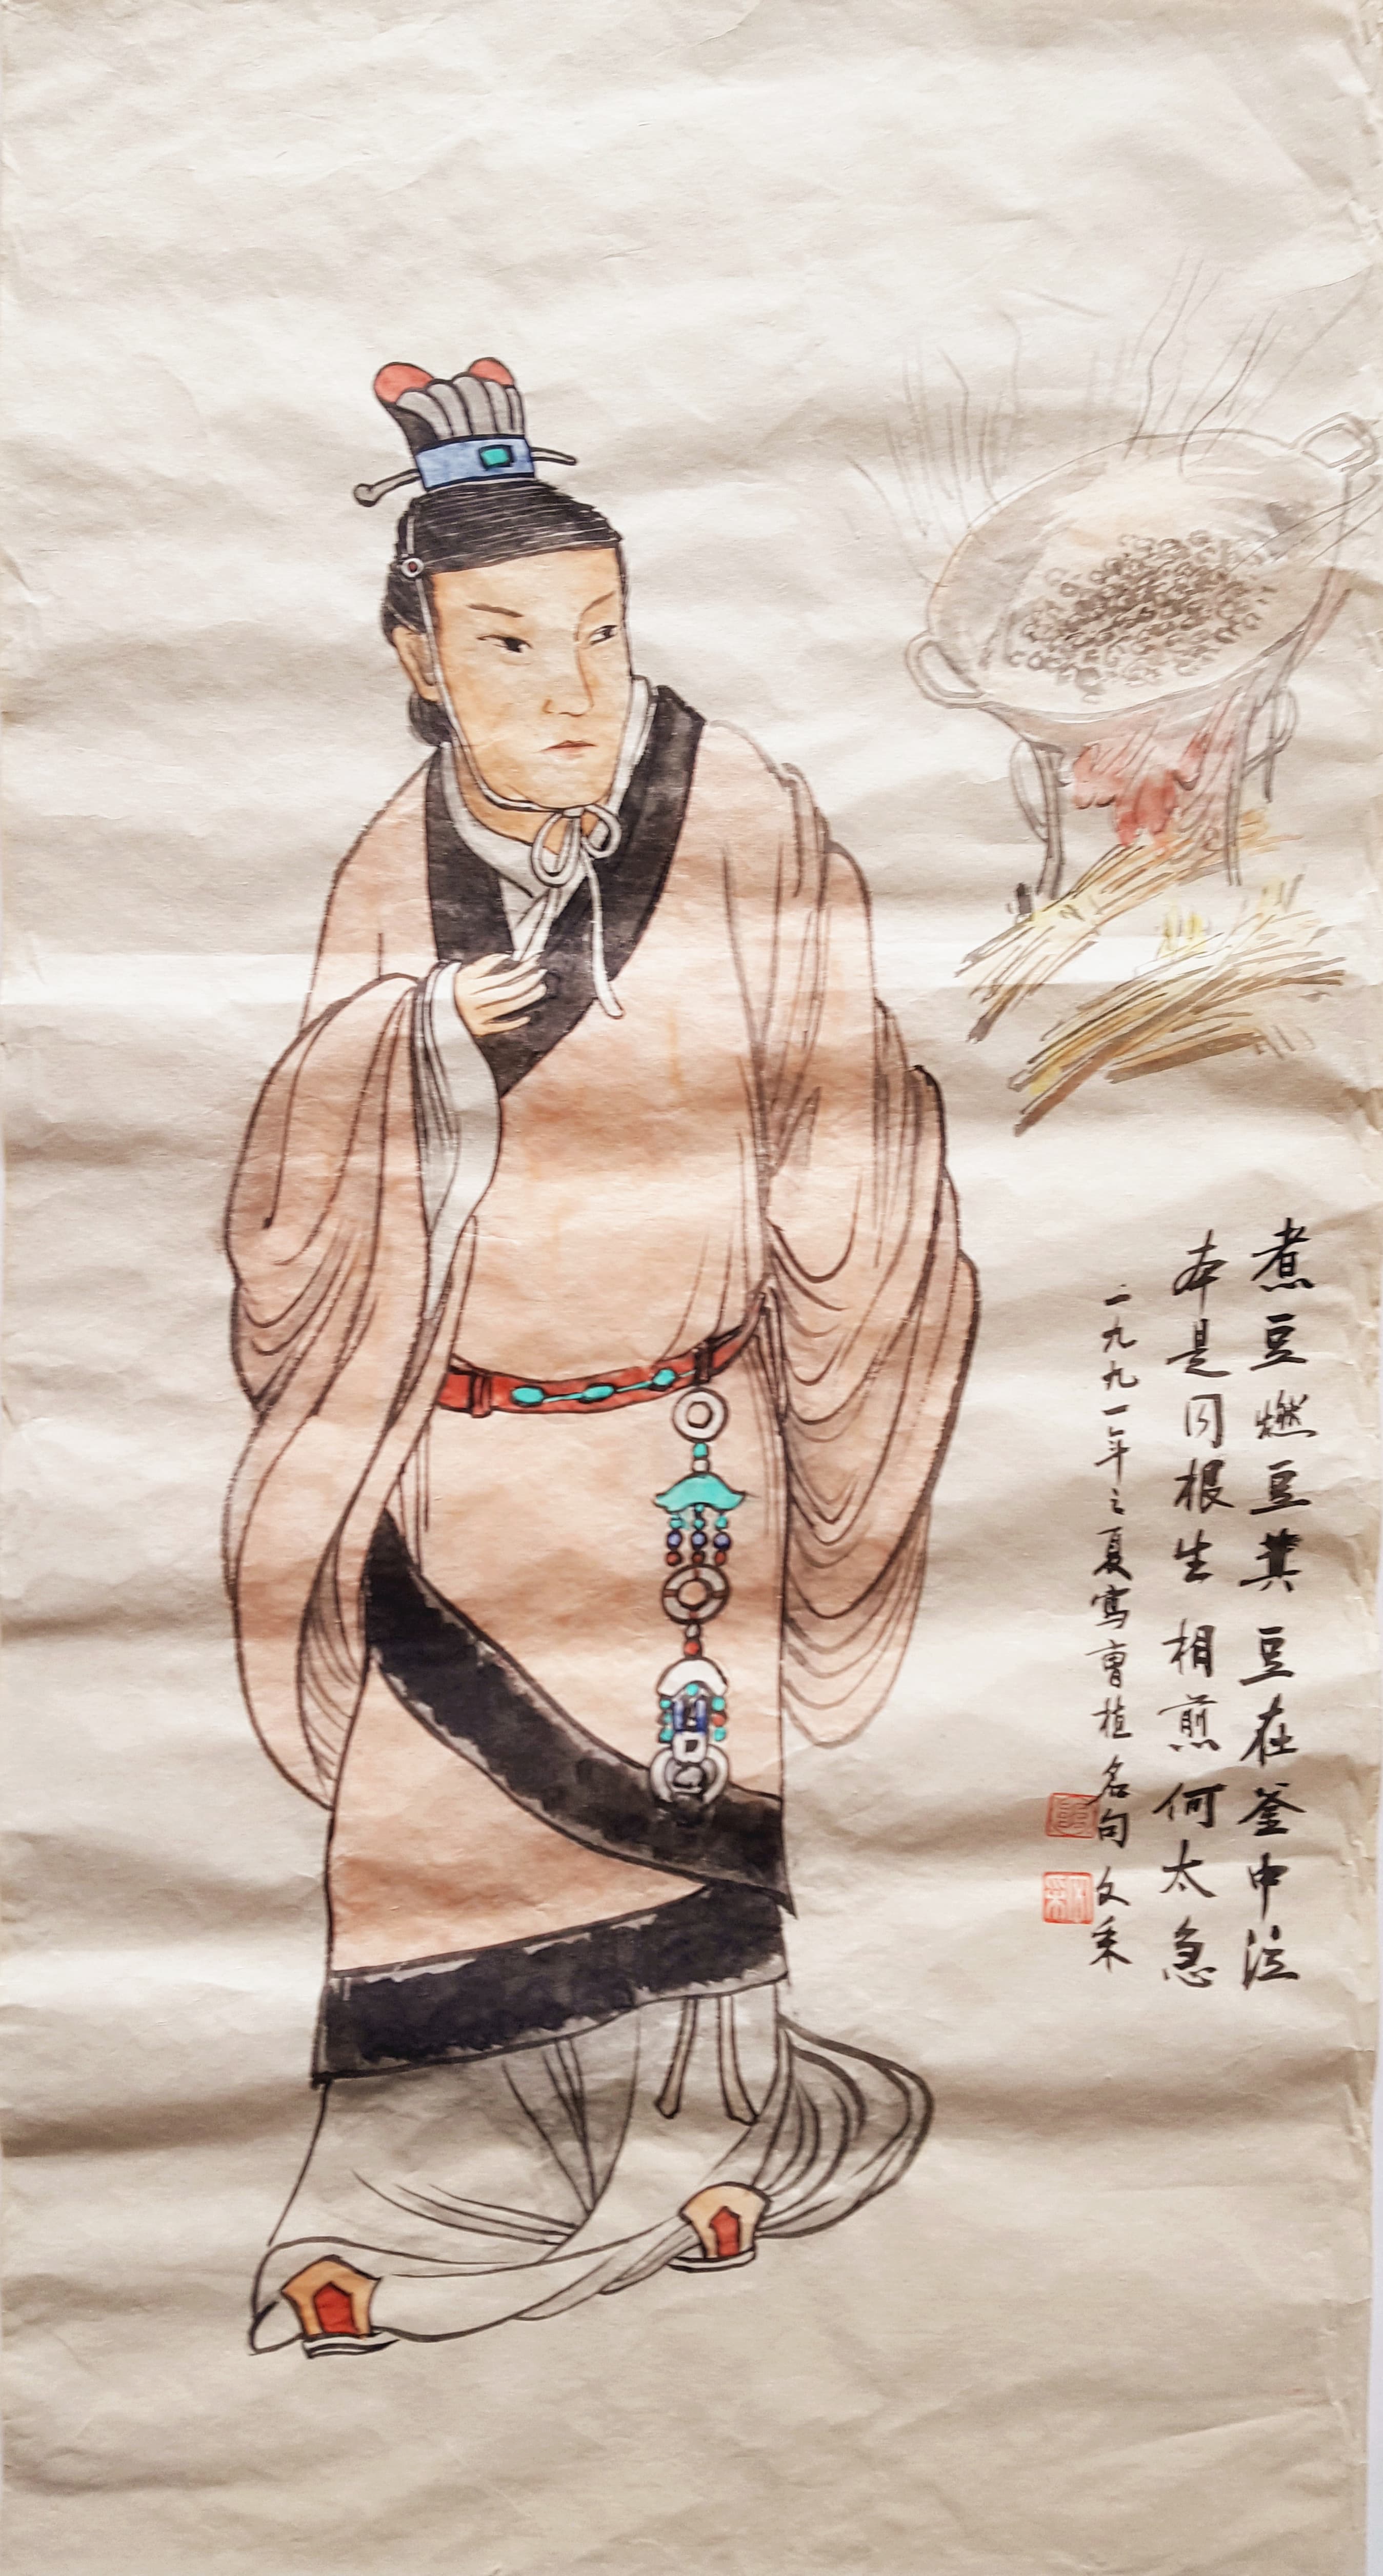 煮豆燃豆萁豆在釜中泣
本是同根生相煎何太急
一九九一年之夏寫曹植名句文采